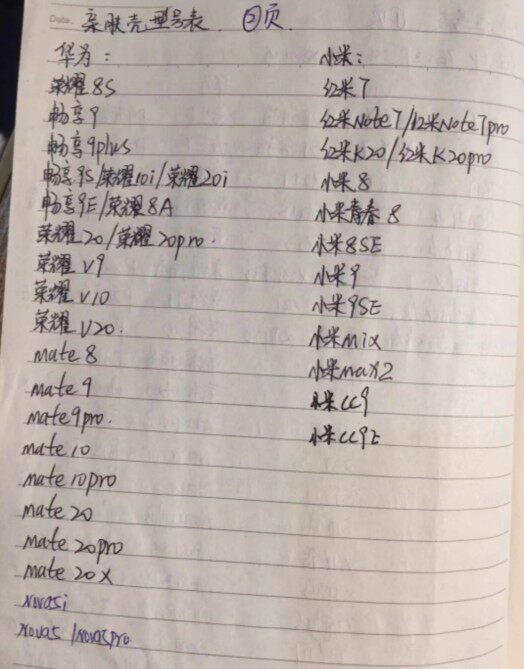 Date.
亲肤壳型号表. ②页
华为:
荣耀8S
畅享9
畅享9plus
畅享9S/荣耀10i/荣耀20i
畅享9E/荣耀8A
荣耀20/荣耀20pro.
荣耀V9
荣耀V10
荣耀V20.
mate 8
mate 9
mate9pro.
mate 10
mate 10pro
mate 20
mate 20pro
mate 20X
nova5i
nova5/nova5pro
小米:
红米7
红米Note7/红米Note7pro
红米K20/红米K20pro
小米8
小米青春8
小米8SE
小米9
小米9SE
小米mix
小米max2
小米CC9
小米CC9E